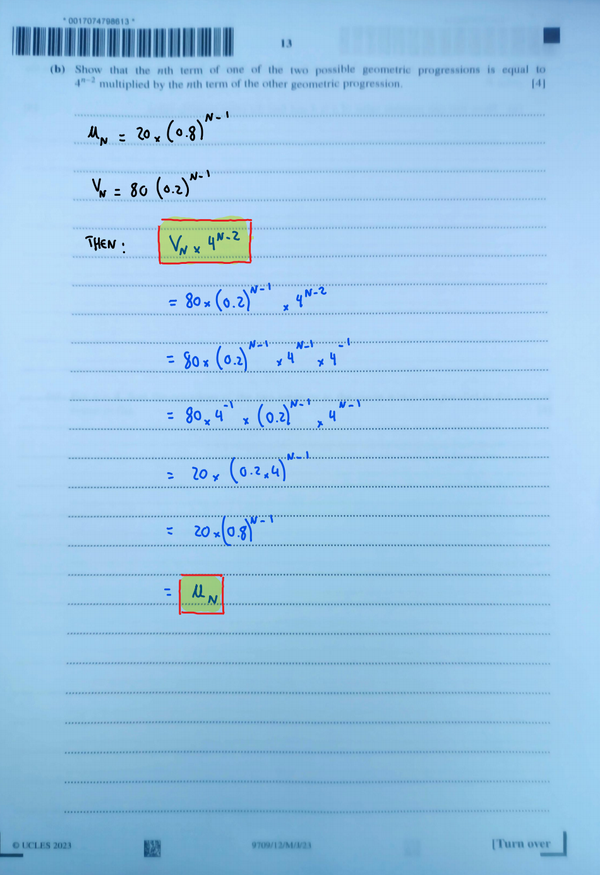 * 0017074798613 *
13
(b) Show that the nth term of one of the two possible geometric progressions is equal to
4ⁿ⁻² multiplied by the nth term of the other geometric progression. [4]
μ_N = 20 × (0.8)^(N-1)
V_N = 80 (0.2)^(N-1)
THEN: V_N × 4^(N-2)
= 80 × (0.2)^(N-1) × 4^(N-2)
= 80 × (0.2)^(N-1) × 4^(N-1) × 4^(-1)
= 80 × 4^(-1) × (0.2)^(N-1) × 4^(N-1)
= 20 × (0.2 × 4)^(N-1)
= 20 × (0.8)^(N-1)
= μ_N
© UCLES 2023 9709/12/M/J/23 [Turn over